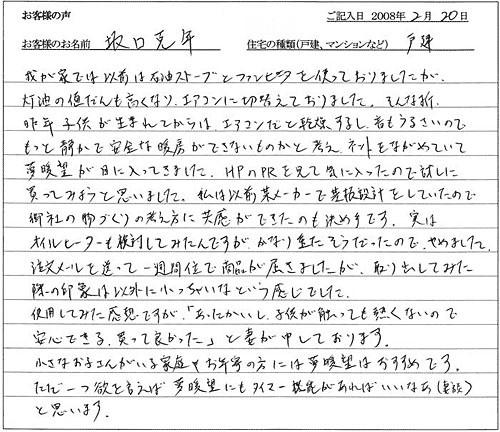 お客様の声 ご記入日 2008年 2月 20日
お客様のお名前 坂口克年 住宅の種類(戸建、マンションなど) 戸建
我が家では以前は石油ストーブとファンヒータを使っておりましたが、
灯油の値だんも高くなり、エアコンに切替えておりました。そんな折、
昨年子供が生まれてからは、エアコンだと乾燥するし、音もうるさいので
もっと静かで安全な暖房ができないものかと考え、ネットをながめていて
夢暖望が目に入ってきました。HPのPRを見て気に入ったので試しに
買ってみようと思いました。私は以前某メーカーで基板設計をしていたので
御社の物づくりの考え方に共感ができたのも決め手です。実は
オイルヒーターも検討してみたんですが、かなり重たそうだったので、やめました。
注文メールを送って一週間位で商品が届きましたが、取り出してみた
際の印象は以外に小っちゃいなという感じでした。
使用してみた感想ですが、「あったかいし、子供が触っても熱くないので
安心できる、買って良かった」と妻が申しております。
小さなお子さんがいる家庭やお年寄の方には夢暖望はおすすめです。
ただ一つ欲を言えば夢暖望にもタイマー機能があればいいなあ(要談)
と思います。